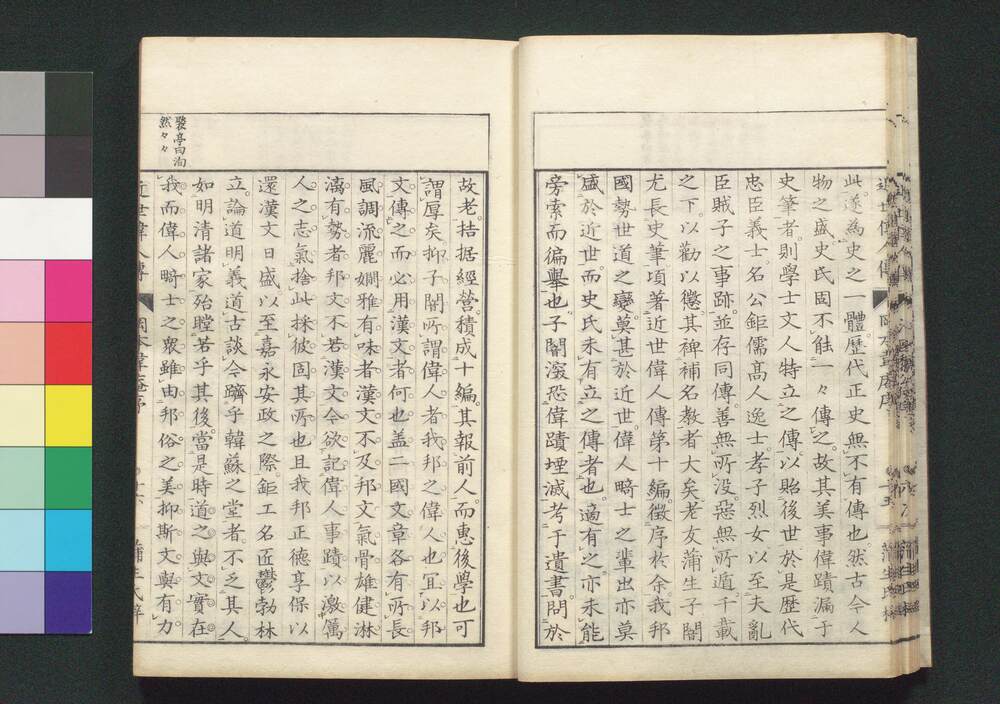 此遂為史之一體歷代正史無不有傳也然古今人
物之盛史氏固不能一々傳之故其美事偉蹟漏于
史筆者則學士文人特立之傳以貽後世於是歷代
忠臣義士名公鉅儒高人逸士孝子烈女以至夫亂
臣賊子之事跡並存同傳善無所没惡無所遁千載
之下以勸以懲其裨補名教者大矣老友蒲生子闇
尤長史筆項著近世偉人傳第十編徵序於余我邦
國勢世道之變莫甚於近世偉人畸士之輩出亦莫
盛於近世而史氏未有立之傳者也適有之亦未能
旁索而徧舉也子闇深恐偉蹟堙滅考于遺書問於
故老拮据經營積成十編其報前人而惠後學也可
謂厚矣抑子闇所謂偉人者我邦之偉人也宜以邦
文傳之而必用漢文者何也盖二國文章各有所長
風調流麗嫺雅有味者漢文不及邦文氣骨雄健淋
漓有勢者邦文不若漢文今欲記偉人事蹟以激厲
人之志氣捨此採彼固其所也且我邦正德享保以
還漢文日盛以至嘉永安政之際鉅工名匠鬱勃林
立論道明義道古談今躋乎韓蘇之堂者不乏其人
如明清諸家殆瞠若乎其後當是時道之與文實在
我而偉人畸士之衆雖由邦俗之美抑斯文與有力
近世偉人傳
蒲生氏梓
褧亭曰洵
然々々